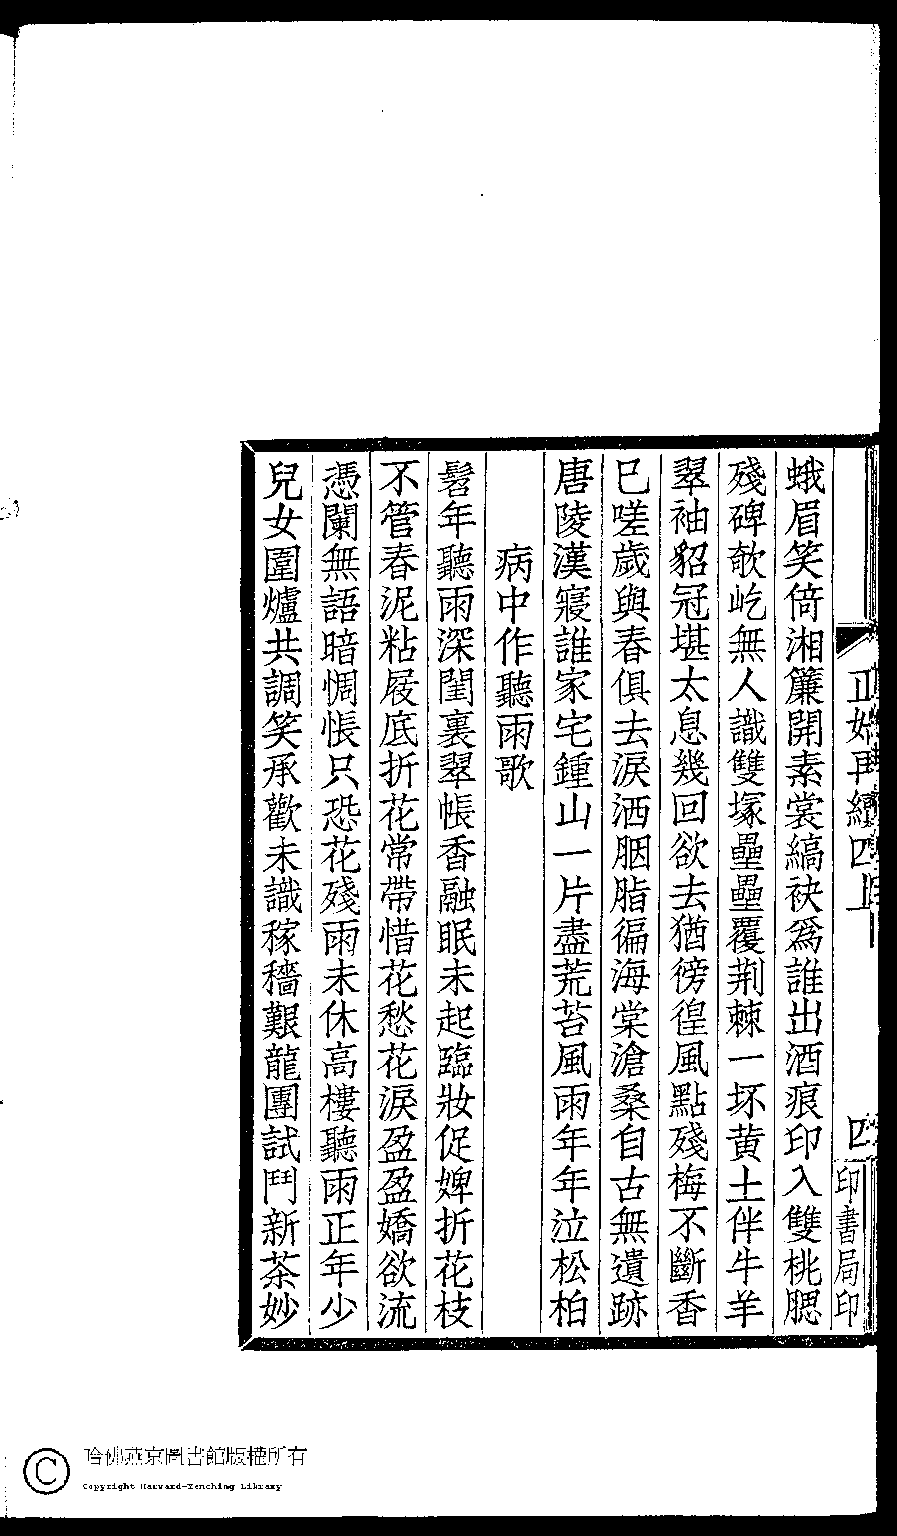 蛾眉笑倚湘簾開素裳縞袂爲誰出酒痕印入雙桃腮
殘碑欹屹無人識雙塚壘壘覆荆棘一坏黄土伴牛羊
翠袖貂冠堪太息幾回欲去猶徬徨風點殘梅不斷香
巳嗟歲與春俱去淚洒胭脂徧海棠滄桑自古無遺跡
唐陵漢寢誰家宅鍾山一片盡荒苔風雨年年泣松柏
病中作聽雨歌
髫年聽雨深閨裏翠帳香融眠未起臨妝促婢折花枝
不管春泥粘屐底折花常帶惜花愁花淚盈盈嬌欲流
憑闌無語暗惆悵只恐花殘雨未休高樓聽雨正年少
兒女圍爐共調笑承歡未識稼穡艱龍團試鬥新茶妙
正始再續四上
四
印書局印
哈佛燕京圖書館版權所有
Copyright Harvard-Yenching Library